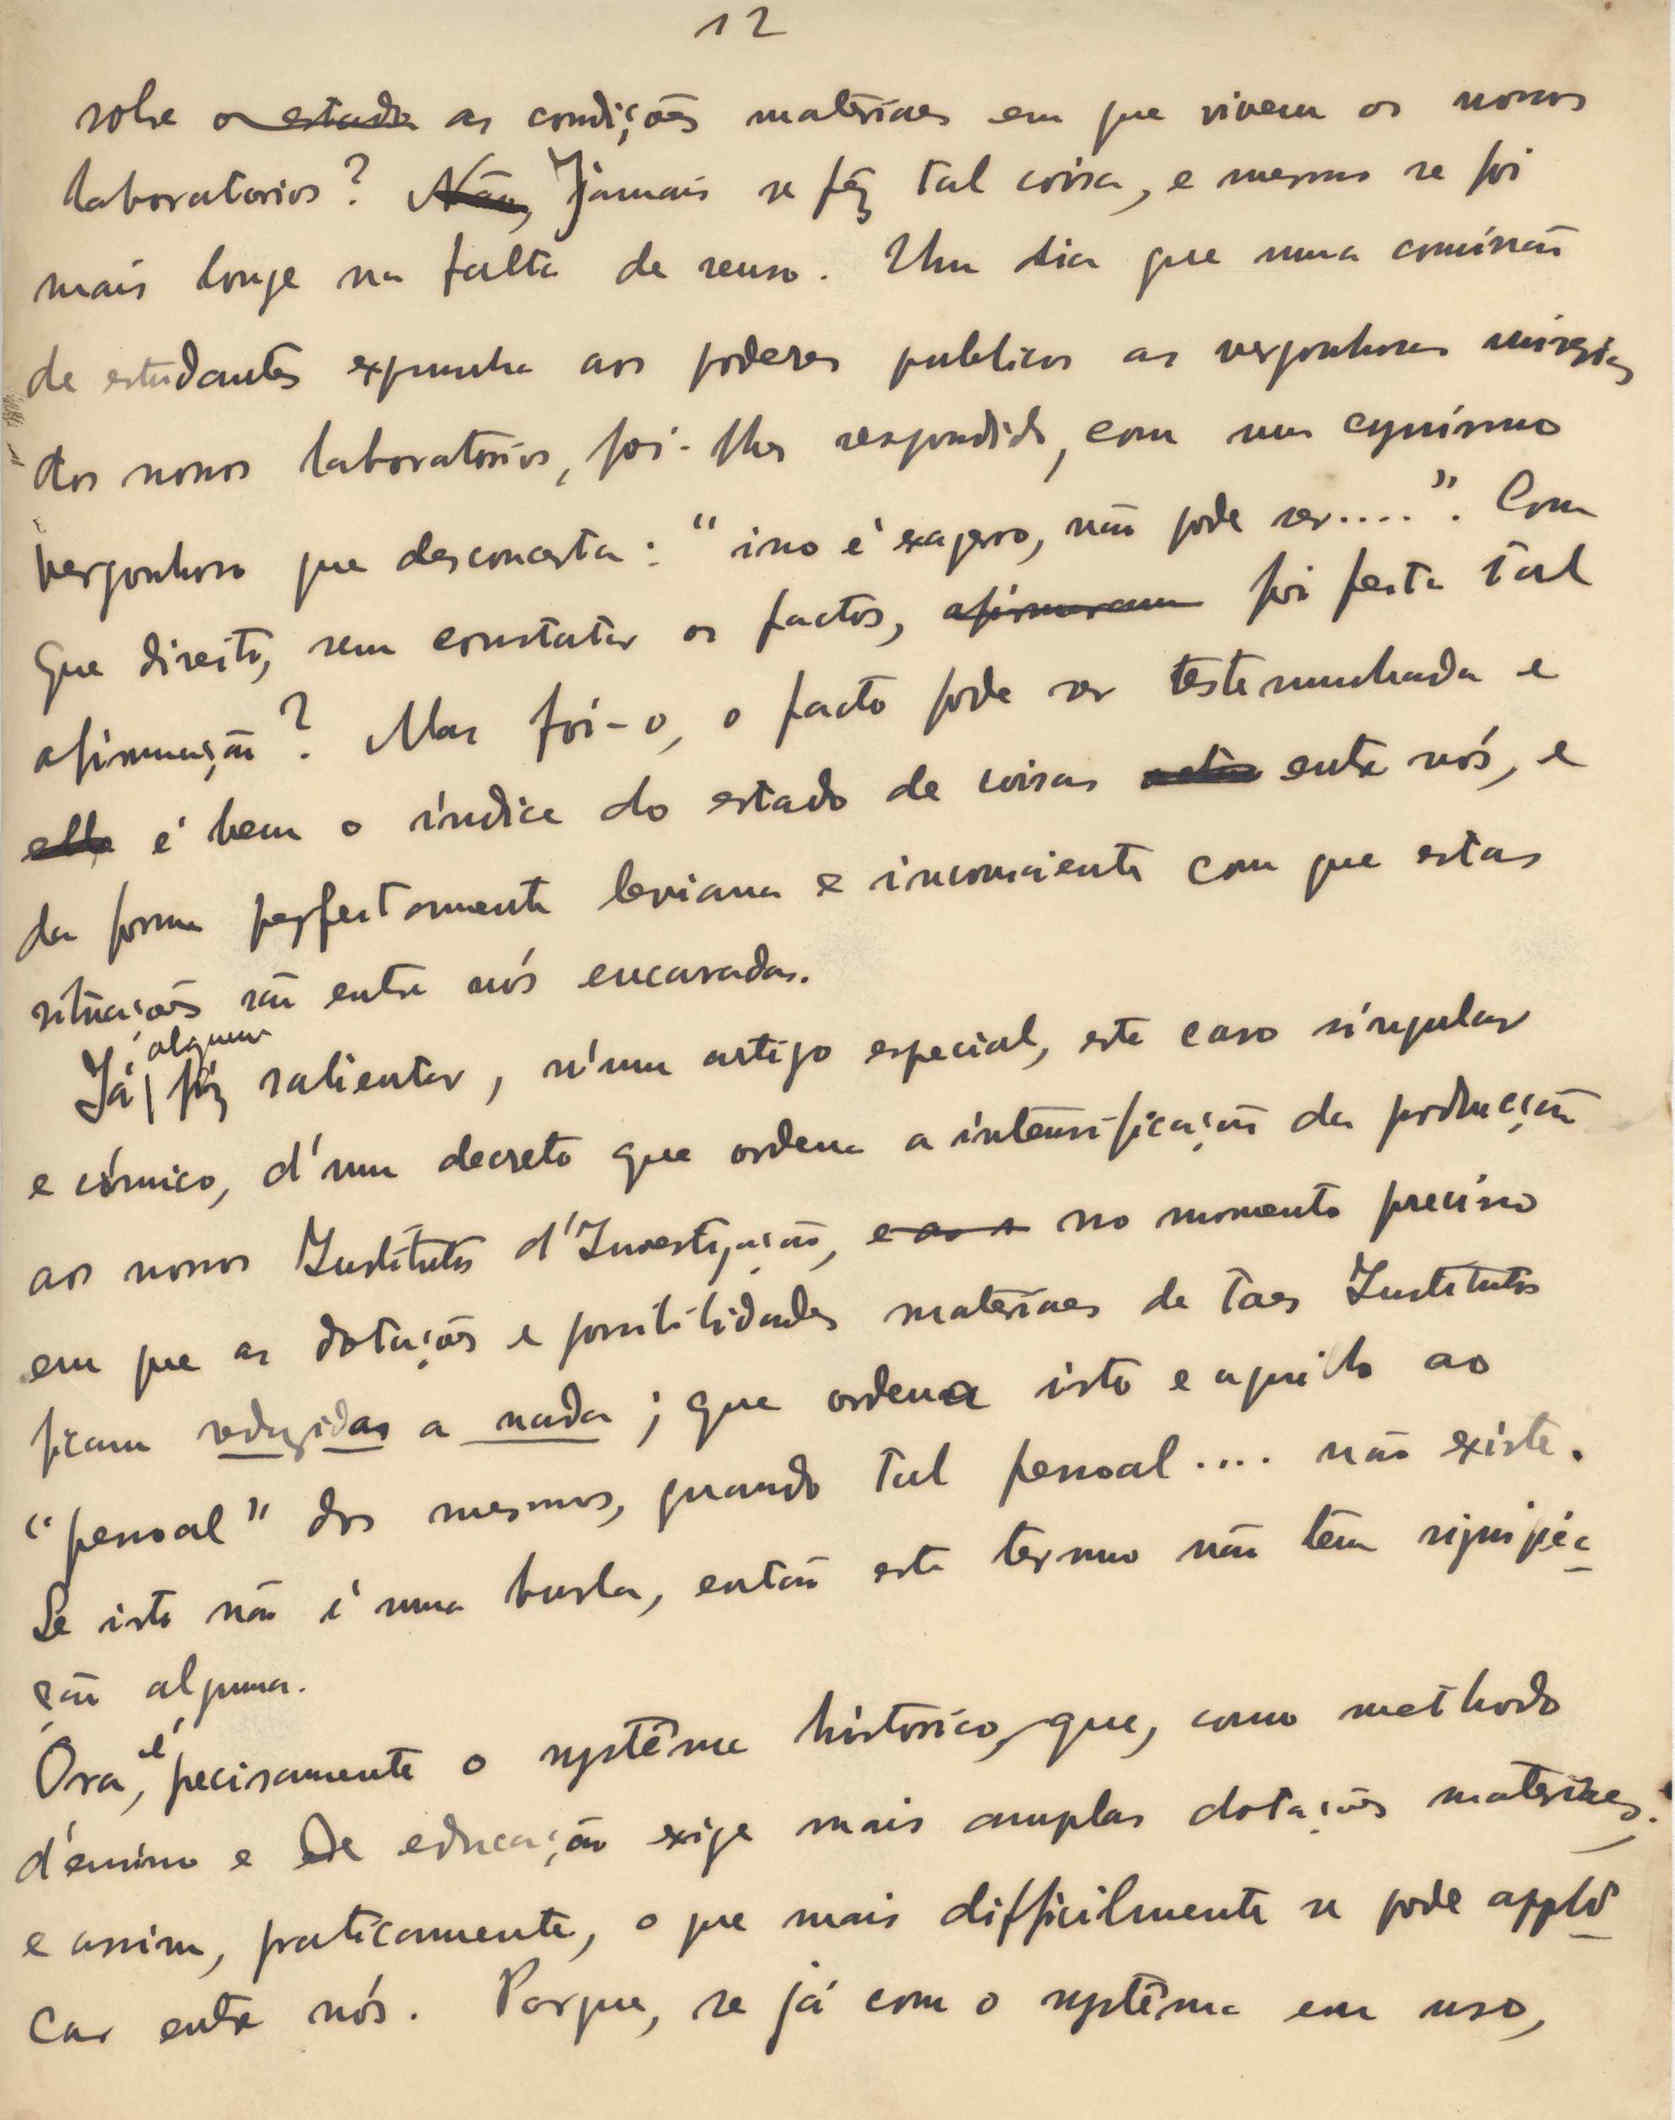 12
sobre o estado as condições materiaes em que vivem os nossos
laboratorios? Não, Jamais se fêz tal coisa, e mesmo se foi
mais longe na falta de senso. Um dia que uma comissão
de estudantes expunha aos poderes publicos as vergonhosas miserias
dos nossos laboratórios, foi-lhes respondido, com um cynismo
vergonhoso que desconcerta: "isso é exagero, não pode ser....". Com
que direito, sem constatar os factos, afirmaram foi feita tal
afirmação? Mas foi-o, o facto pode ser testemunhada e
elle é bem o índice do estado de coisas entre nós, e
da forma perfeitamente leviana e inconsciente com que estas
situações são entre nós encaradas.
Já alguem fêz salientar, n'um artigo especial, este caso singular
e cómico, d'um decreto que ordena a intensificação da producção
aos nossos Institutos d'Investigação, e ao s no momento preciso
em que as dotações e possibilidades materiaes de taes Institutos
ficam reduzidas a nada; que ordena isto e aquilo ao
"pessoal" dos mesmos, quando tal pessoal.... não existe.
Se isto não é uma burla, então este termo não tem signific-
ção alguma.
Ora, é precisamente o systêma histórico, que, como methodo
d'ensino e de educação exige mais amplas dotações materiaes,
e assim, praticamente, o que mais difficilmente se pode appli-
car entre nós. Porque, se já com o systêma em uso,